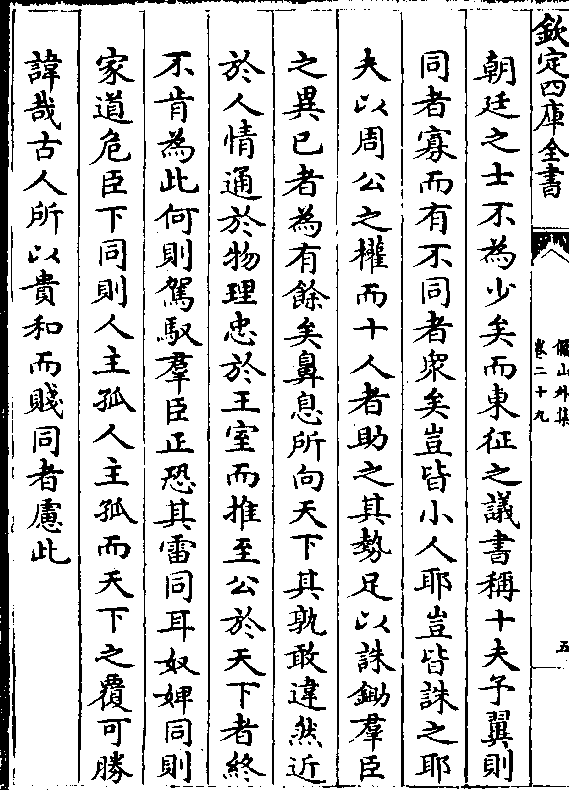 欽定四庫全書
儼山外集
卷二十九
五
朝廷之士不為少矣而東征之議書稱十夫予翼則
同者寡而有不同者衆矣豈皆小人耶豈皆誅之耶
夫以周公之權而十人者助之其勢足以誅鋤羣臣
之異已者為有餘矣鼻息所向天下其孰敢違然近
於人情通於物理忠於王室而推至公於天下者終
不肯為此何則駕馭羣臣正恐其雷同耳奴婢同則
家道危臣下同則人主孤人主孤而天下之覆可勝
諱哉古人所以貴和而賤同者慮此